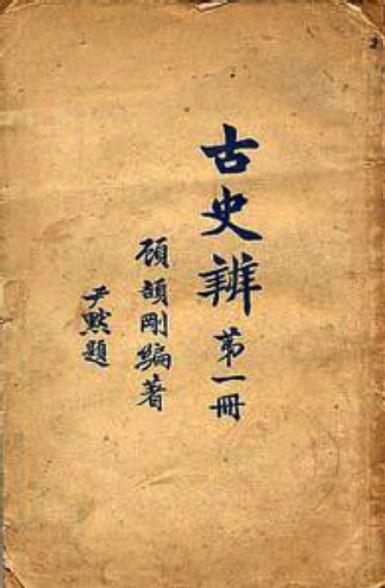 古史辨 第一冊
顧頡剛編著
尹默題